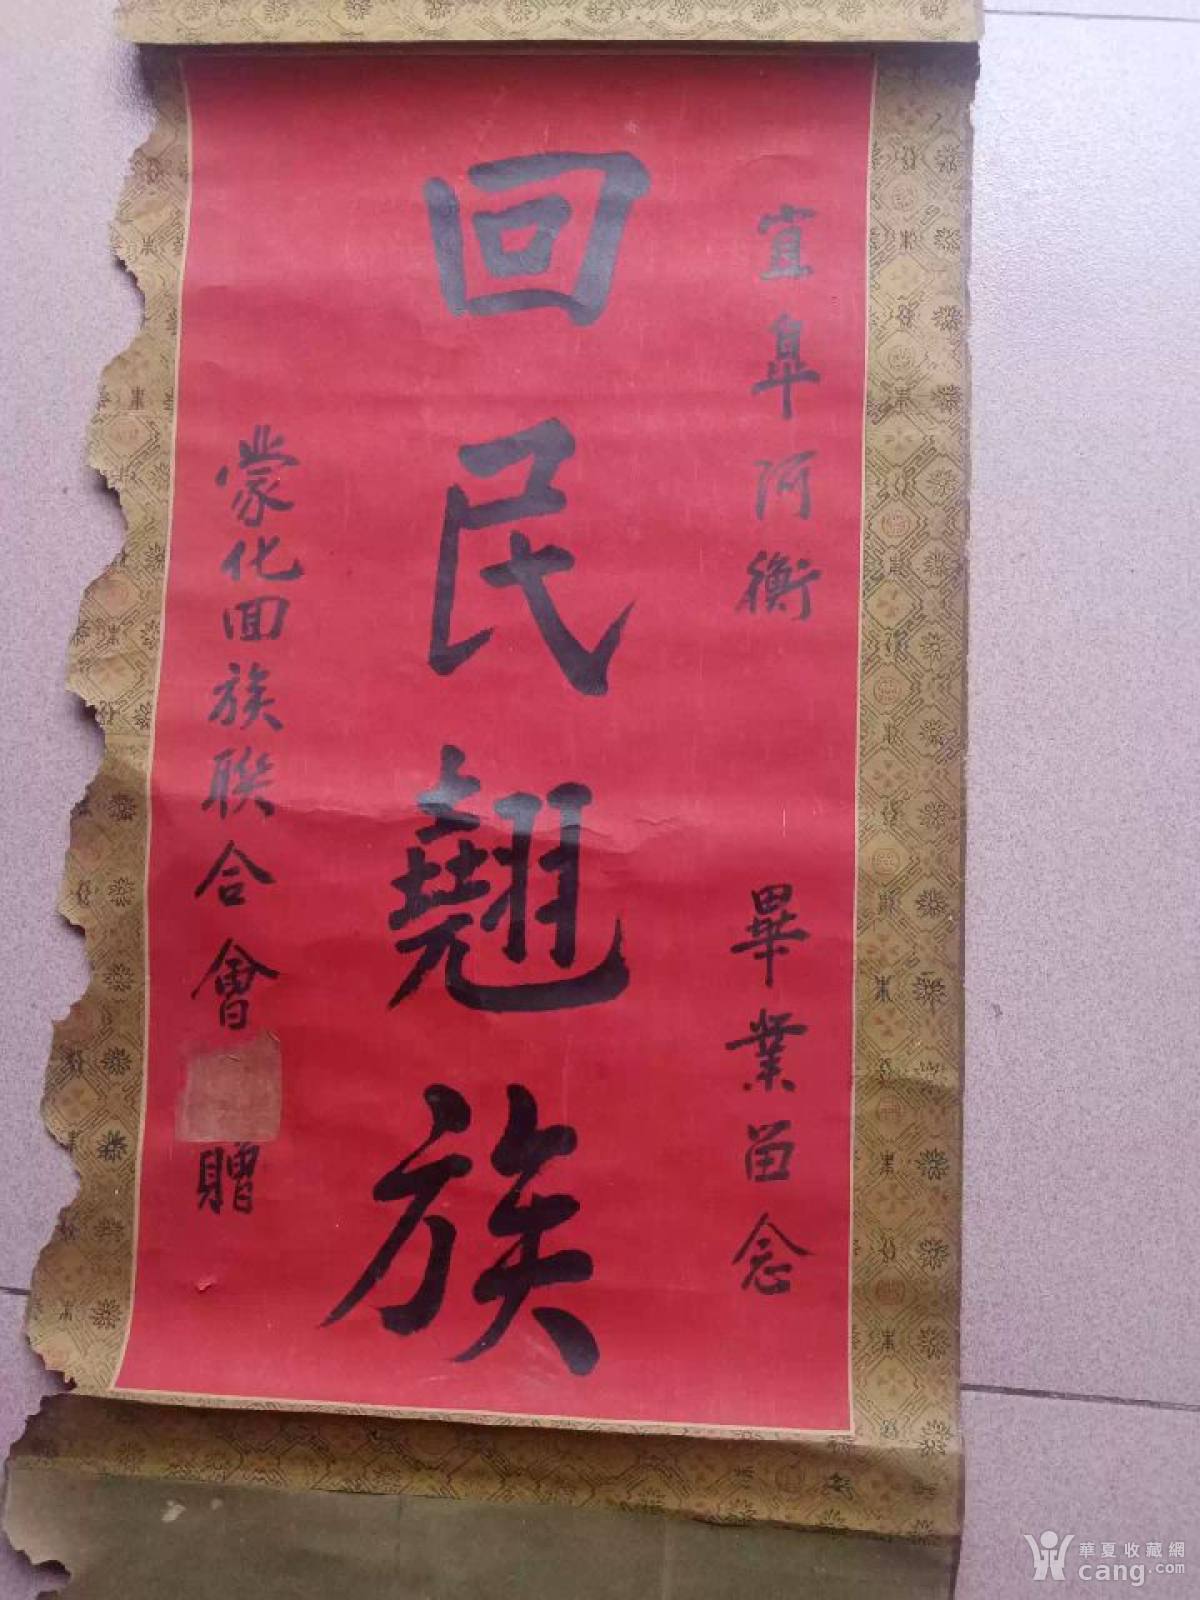 宜阜阿衡
畢業畱念
回民翹族
蒙化囬族聯合會
贈
華夏收藏網
cang.com